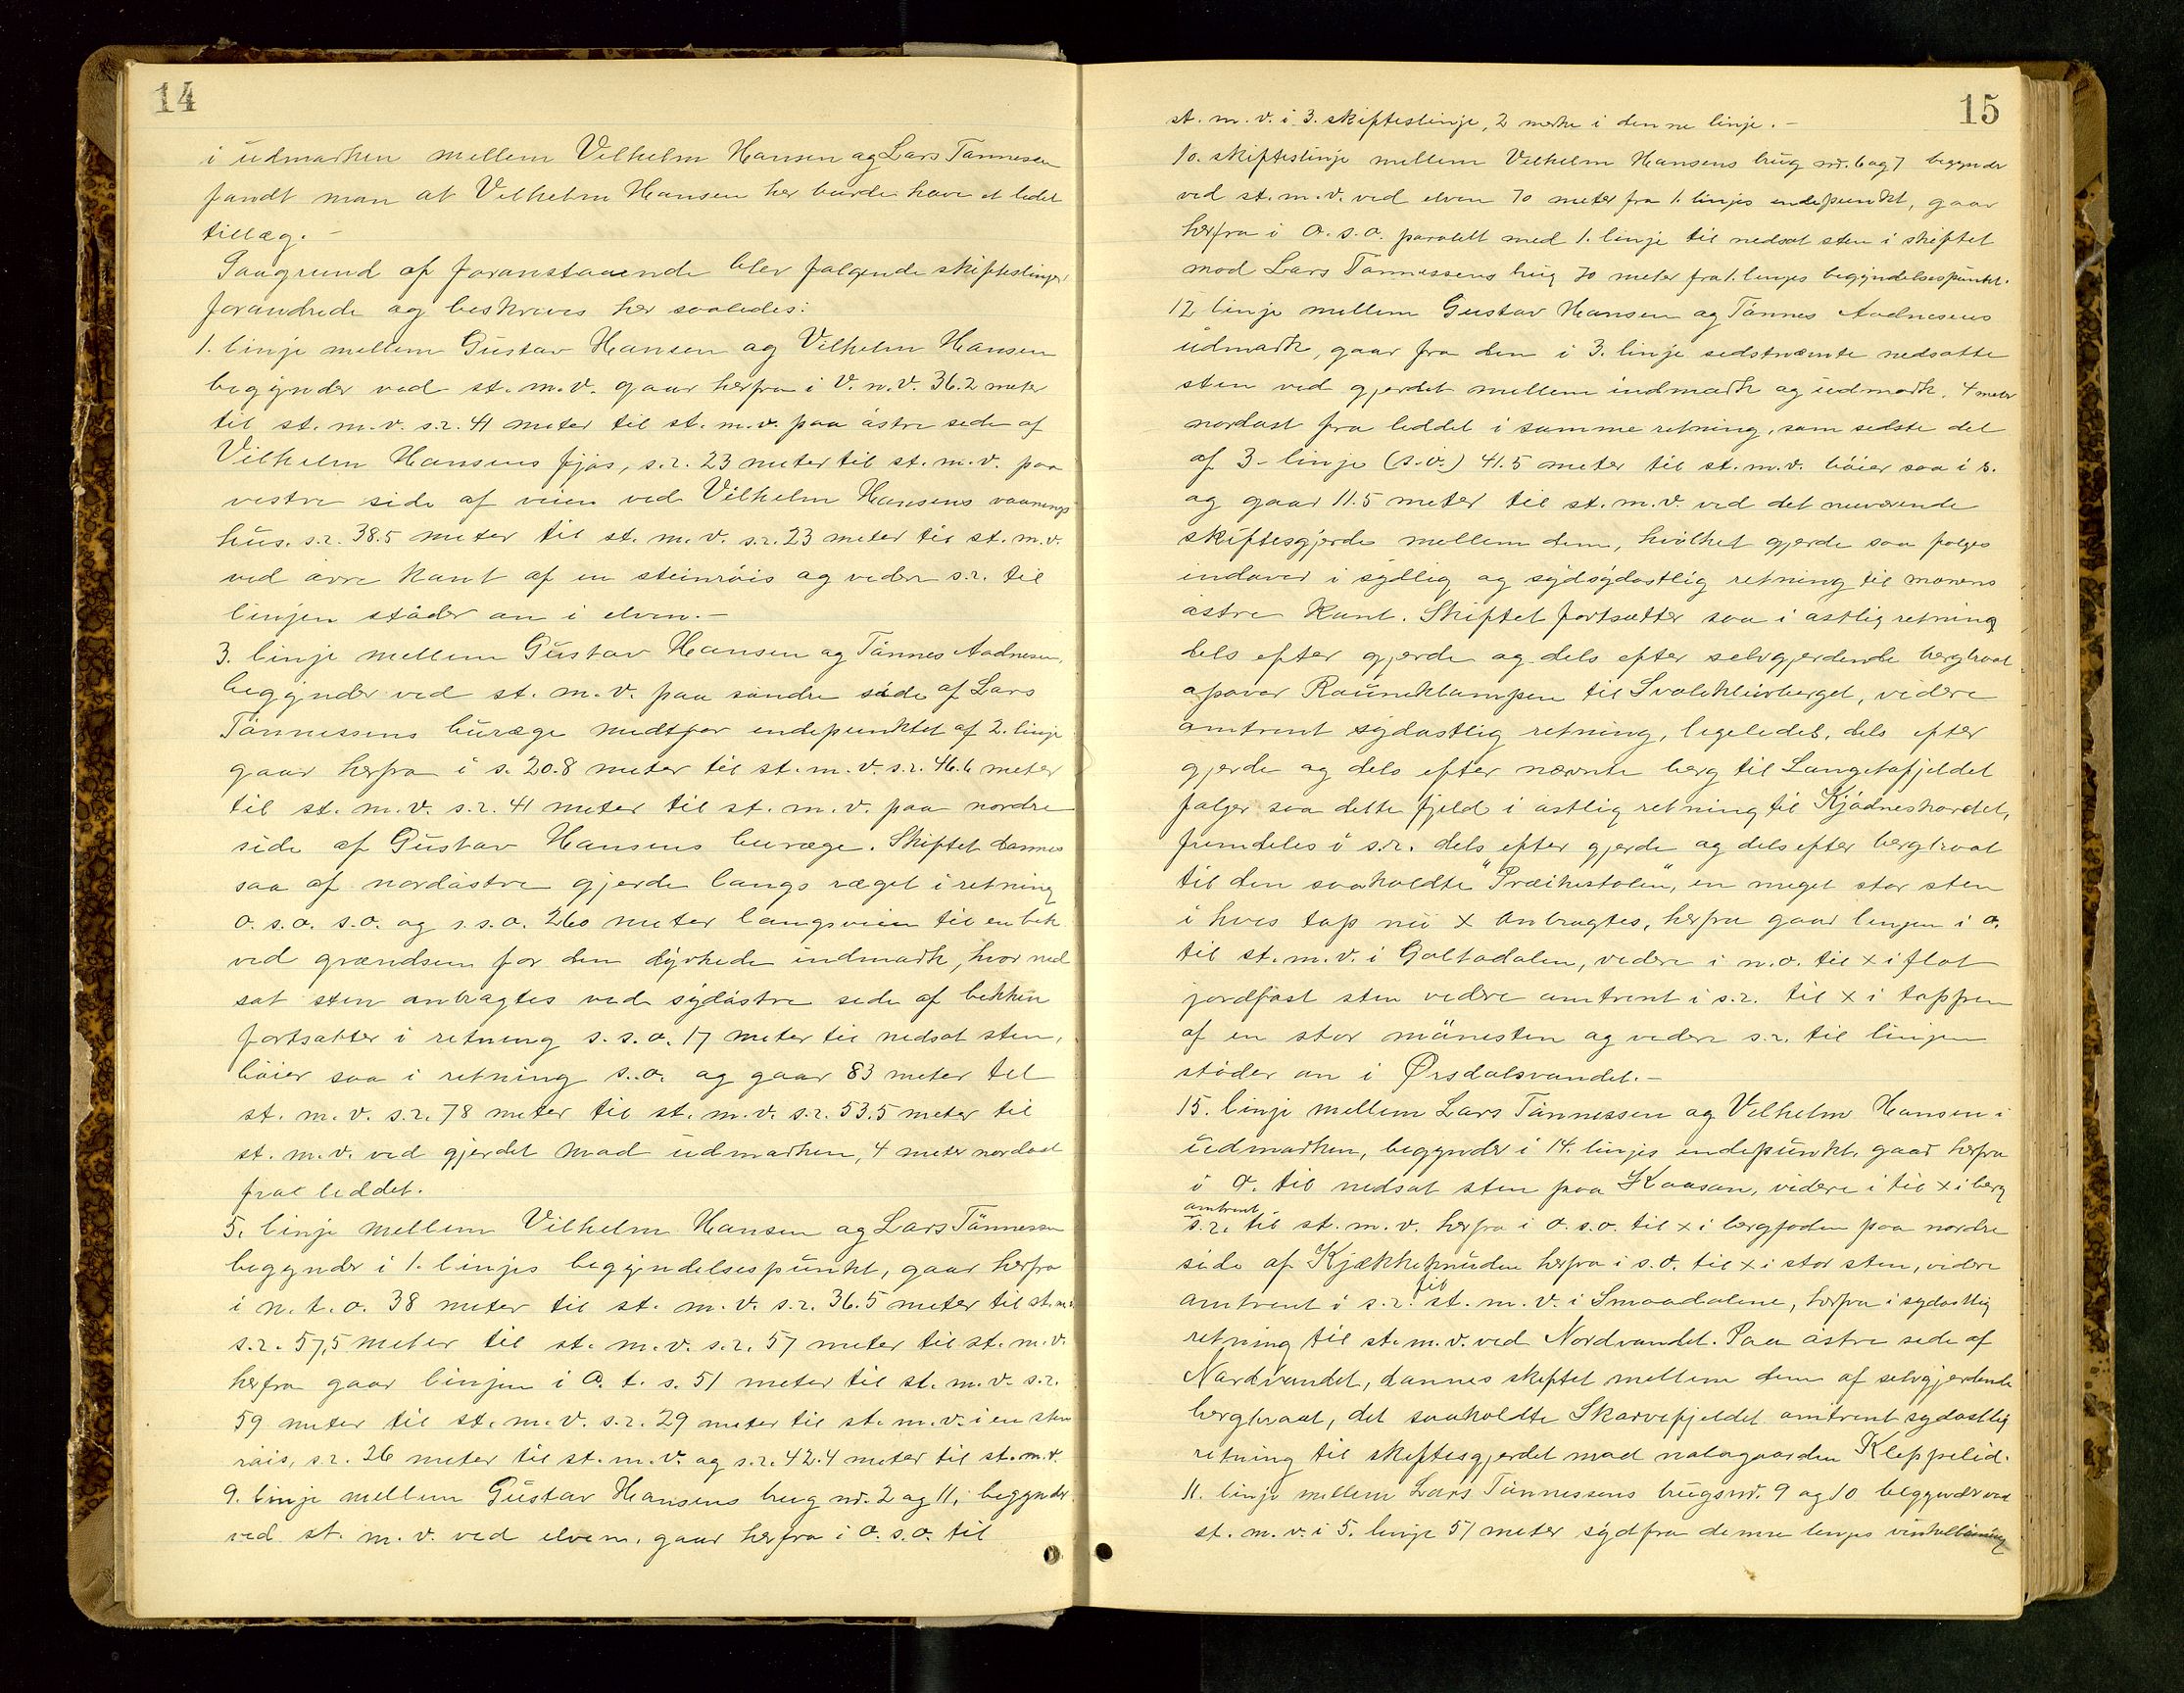 14
i udmarken mellem Vilhelm Hansen og Lars Tønnesen
fandt man at Vilhelm Hansen her burde have et lidet
tillæg. -
Paagrund af foranstaaende blev følgende skifteslinjer
forandrede og beskrives her saaledes:
1. linje mellem Gustav Hansen og Vilhelm Hansen
begynder ved st. m. v. gaar herfra i V. n. v. 36.2 meter
til st. m. v. s.r. 41 meter til st. m. v. paa østre side af
Vilhelm Hansens fjøs, s.r. 23 meter til st. m. v. paa
vestre side af veien ved Vilhelm Hansens vaanings
hus. s.r. 38.5 meter til st. m. v. s.r. 23 meter til st. m. v.
ved øvre kant af en steinrøis og videre s.r. til
linjen støder an i elven. -
3. linje mellem Gustav Hansen og Tønnes Aadnesen,
begynder ved st. m. v. paa søndre side af Lars
Tønnessens buræge midtfor endepunktet af 2. linje
gaar herfra i s. 20.8 meter til st. m. v. s.r. 46.6 meter
til st. m. v. s.r. 41 meter til st. m. v. paa nordre
side af Gustav Hansens buræge. Skiftet dannes
saa af nordøstre gjerde langs ræget i retning
o. s. o. s. o. og s. s. o. 260 meter langs veien til en bek
ved grændsen for den dyrkede indmark, hvor ned
sat sten anbragtes ved sydøstre side af bekken
fortsætter i retning s. s. o. 17 meter til nedsat sten,
bøier saa i retning s. o. og gaar 83 meter til
st. m. v. s.r. 78 meter til st. m. v. s.r. 53.5 meter til
st. m. v. ved gjerdet mod udmarken, 4 meter nordost
fra leddet.
5. linje mellem Vilhelm Hansen og Lars Tønnessen
begynder i 1. linjes begyndelsespunkt, gaar herfra
i n. t. o. 38 meter til st. m. v. s.r. 36.5 meter til st. m. v.
s.r. 57,5 meter til st. m. v. s.r. 57 meter til st. m. v.
herfra gaar linjen i O. t. s. 51 meter til st. m. v. s.r.
59 meter til st. m. v. s.r. 29 meter til st. m. v. i en sten
røis, s.r. 26 meter til st. m. v. og s.r. 42.4 meter til st. m. v.
9. linje mellem Gustav Hansens brug nr. 2 og 11, begynder
ved st. m. v. ved elven, gaar herfra i o. s. o. til
15
st. m. v. i 3. skifteslinje, 2 merke i denne linje. -
10. skifteslinje mellem Vilhelm Hansens brug nr. 6 og 7 begynder
ved st. m. v. ved elven 70 meter fra 1. linjes endepunkt, gaar
herfra i O. s. o. paralelt med 1. linje til nedsat sten i skiftet
mod Lars Tønnessens brug 70 meter fra 1. linjes begyndelsespunkt.
12 linje mellem Gustav Hansen og Tønnes Aadnesens
udmark, gaar fra den i 3. linje sidstnævnte nedsatte
sten ved gjerdet mellem indmark og udmark, 4 meter
nordost fra leddet i samme retning, som sidste del
af 3- linje (s.o.) 41.5 meter til st. m. v. bøier saa i s.
og gaar 11.5 meter til st. m. v. ved det nuværende
skiftesgjerde mellem dem, hvilket gjerde saa følges
indover i sydlig og sydsydostlig retning til moens
østre kant. Skiftet fortsætter saa i østlig retning
dels efter gjerde og dels efter selvgjerdende berghval
opover Rauneklampen til Svaleklivberget, videre
omtrent sydostlig retning, ligeledes, dels efter
gjerde og dels efter nævnte berg til Langetofjeldet
følger saa dette fjeld i østlig retning til Kjødneskardet,
fremdeles i s.r. dels efter gjerde og dels efter berghval
til den saakaldte "Præikestolen", en meget stor sten
i hvis top nu x anbragtes, herfra gaar linjen i o.
til st. m. v. i Galtadalen, videre i n. o. til x i flat
jordfast sten videre omtrent i s.r. til x i toppen
af en stor mänesten og videre s.r. til linjen
støder an i Ørsdalsvandet. -
15. linje mellem Lars Tønnessen og Vilhelm Hansen i
udmarken, begynder i 14. linjes endepunkt, gaar herfra
i O. til nedsat sten paa Kaasan, videre i til x i berg
omtrent
s.r. til st. m. v. herfra i o. s. o. til x i bergfoden paa nordre
side af Kjækkeknuden herfra i s. o. til x i stor sten, videre
omtrent i s.r. til st. m. v. i Smaadalene, herfra i sydostlig
retning til st. m. v. ved Nordvandet. Paa østre side af
Nordvandet, dannes skiftet mellem dem af selvgjerdende
berghval, det saakaldte Skarvefjeldet omtrent sydostlig
retning til skiftesgjerdet mod nabogaarden Kleppelid.
11. linje mellem Lars Tønnessens brugsnr. 9 og 10 begynder ved
st. m. v. i 5. linje 51 meter syd fra denne linjes vinkelbøining